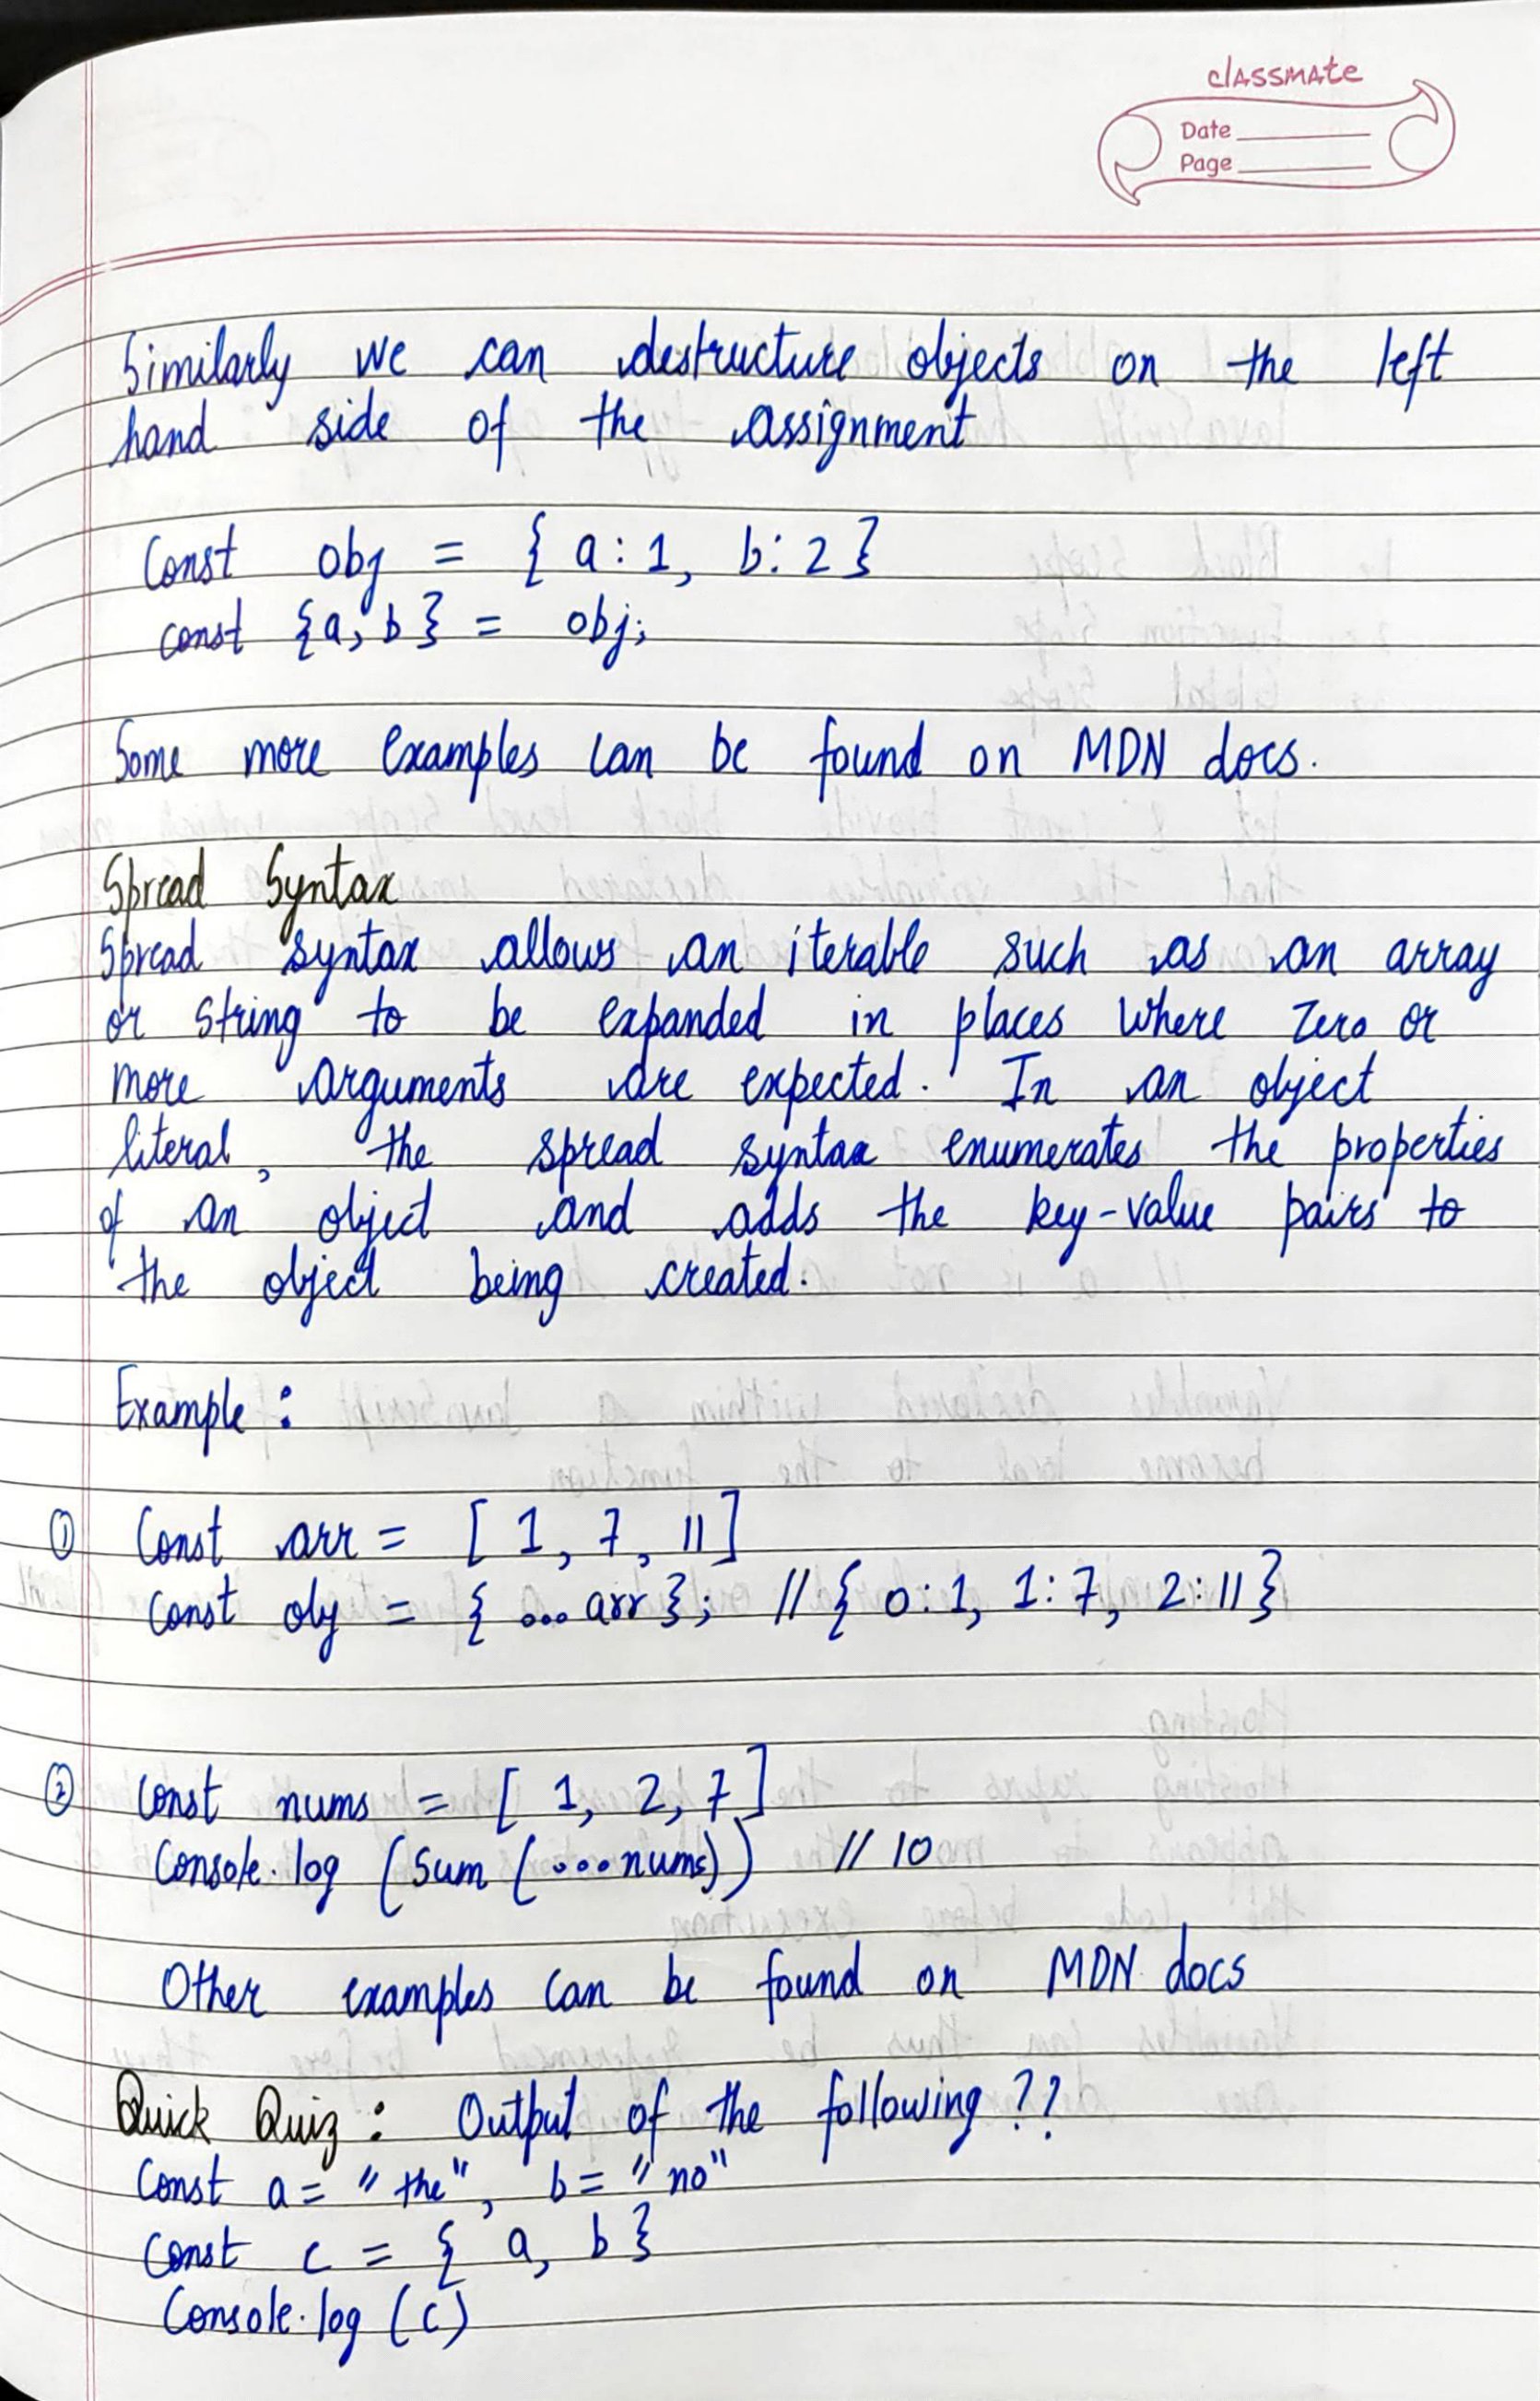 classmate
Date
Page
Similarly we can destructure objects on the left
hand side of the assignment
Const obj = { a : 1, b : 2 }
const {a, b} = obj;
Some more examples can be found on MDN docs.
Spread Syntax
Spread syntax allows an iterable such as an array
or string to be expanded in places where zero or
more arguments are expected. In an object
literal, the spread syntax enumerates the properties
of an object and adds the key-value pairs to
the object being created.
Example :
① Const arr = [ 1, 7, 11 ]
Const obj = { ... arr }; // { 0:1, 1:7, 2:11 }
② Const nums = [ 1, 2, 7 ]
Console.log (Sum (...nums)) // 10
Other examples can be found on MDN docs
Quick Quiz : Output of the following ??
Const a = "the", b = "no"
Const c = { a, b }
Console.log (c)